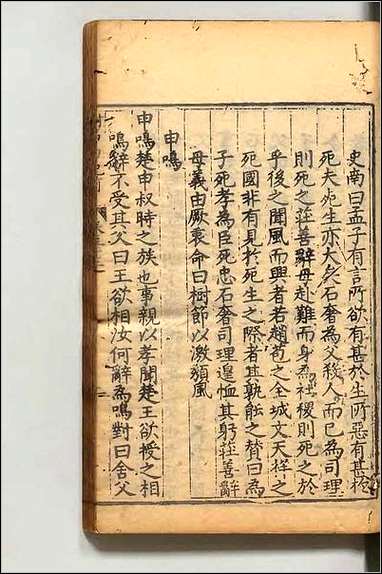 史南曰孟子有言所欲有甚於生所惡有甚於
死夫死生亦大矣石奢為父殺人而已為司理
則死之莊善辭母赴難而身為社稷則死之於
乎後之聞風而興者若趙苞之全城文天祥之
死國非有見於死生之際者其孰能之贊曰為
子死孝為臣死忠石奢司理遑恤其躬莊善辭
母義由厥衷命曰樹節以激頹風
申鳴
申鳴楚申叔時之族也事親以孝聞楚王欲授之相
鳴辭不受其父曰王欲相汝何辭為鳴對曰舍父